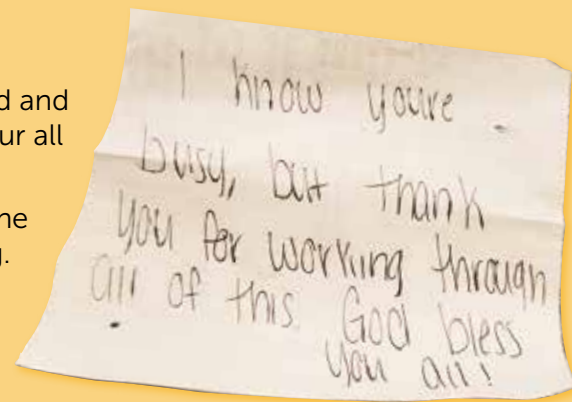 d and
ur all
he
g.
I know youre
busy, but thank
you for working through
all of this. God bless
you all!